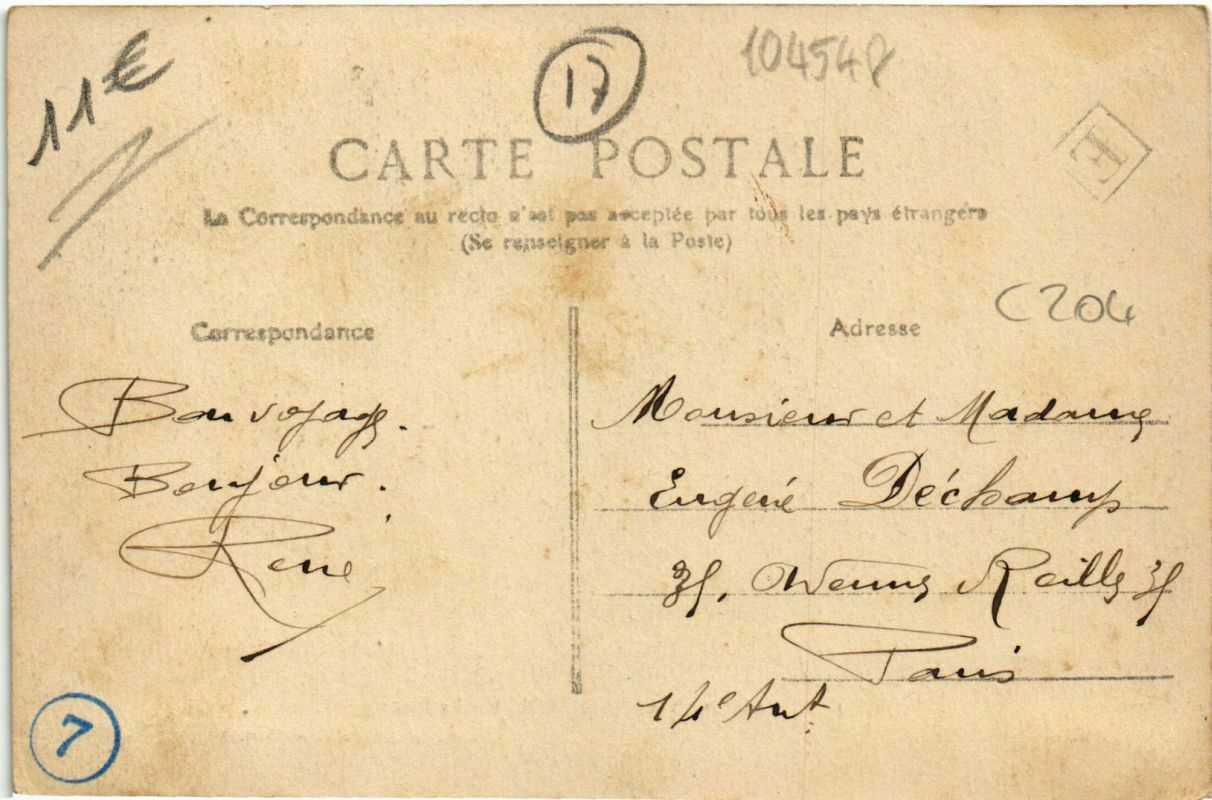 11€
17
104548
CARTE POSTALE
E
La Correspondance au recto n'est pas acceptée par tous les pays étrangers
(Se renseigner à la Poste)
C204
Correspondance
Bon voyage.
Bonjour.
René
7
Adresse
Monsieur et Madame
Eugené Déchamp
35, Avenue Reille 35
Paris
14e Arrt